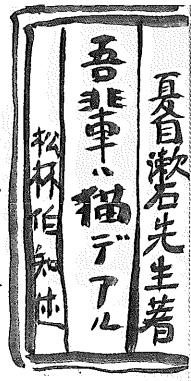 夏目漱石先生著
吾輩ハ猫デアル
松林伯知述